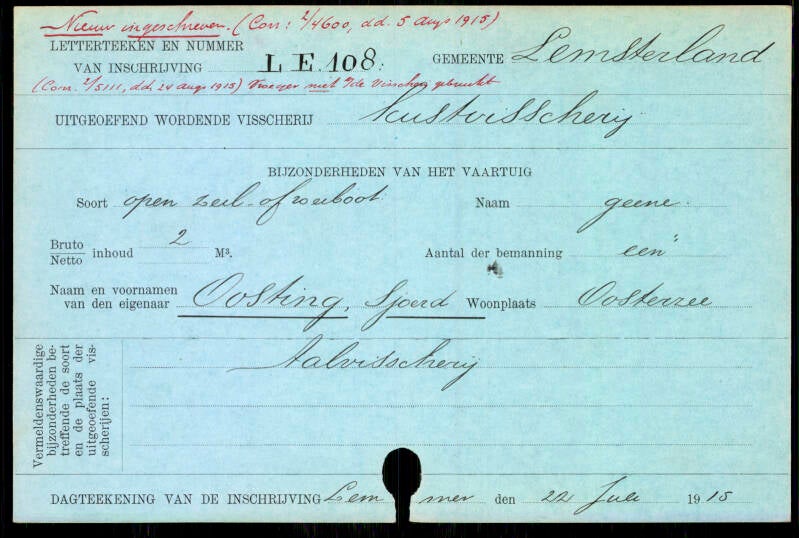 Nieuw ingeschreven. (Corr: 2/4600, dd. 5 augs 1915)
LETTERTEEKEN EN NUMMER
VAN INSCHRIJVING L E. 108. GEMEENTE Lemsterland
(Corr. 2/5111, dd. 24 augs 1915) Vroeger niet v/de Visscherij gebruikt
UITGEOEFEND WORDENDE VISSCHERIJ Kustvisscherij
BIJZONDERHEDEN VAN HET VAARTUIG
Soort open zeil- of roeiboot Naam geene.
Bruto
Netto inhoud 2 M³. Aantal der bemanning een
Naam en voornamen
van den eigenaar Oosting, Sjoerd Woonplaats Oosterzee
Vermeldenswaardige
bijzonderheden be-
treffende de soort
en de plaats der
uitgeoefende vis-
scherijen:
Aalvisscherij
DAGTEEKENING VAN DE INSCHRIJVING Lemmer den 22 Juli 1915